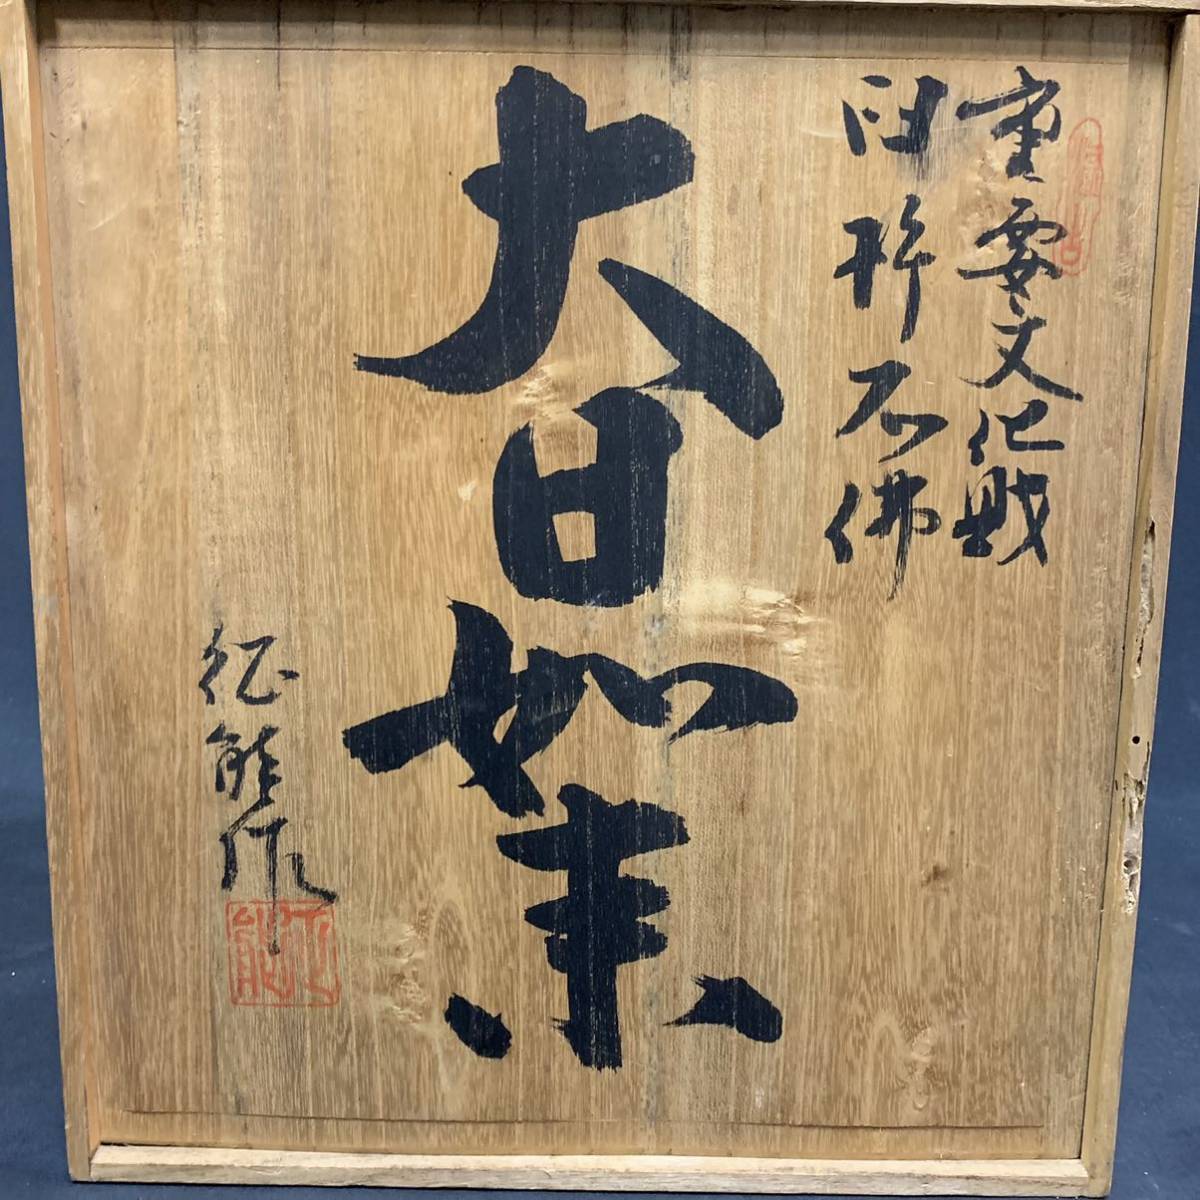 重要文化財
臼杵石佛
大日如来
征能作